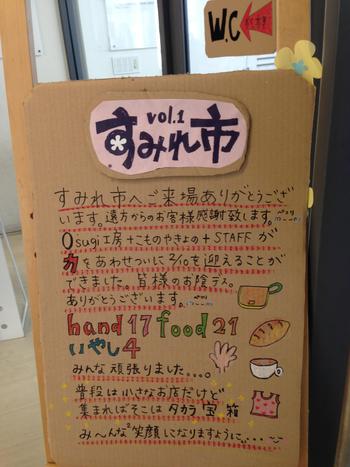 W.C
vol.1
すみれ市
すみれ市へご来場ありがとうござ
います。遠方からのお客様感謝致します。
Osugi工房+こものやきよの+STAFFが
力をあわせついに2/10を迎えることが
できました。皆様のお陰デス。
ありがとうございます。
hand17 food21
いやし4
みんな頑張りました...。
普段は小さなお店だけど
集まればそこはタカラ宝箱
み〜んな笑顔になりますように...